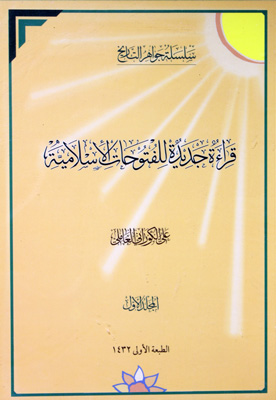 سلسلة جواهر التاريخ
قراءة جديدة للفتوحات الإسلامية
علي الكوراني العاملي
المجلد الأول
الطبعة الأولى ١٤٣٢